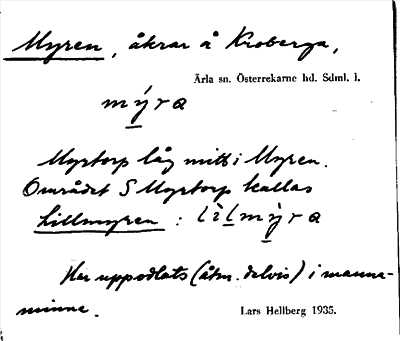 Myren, åkrar å Kroberga,
Ärla sn. Österrekarne hd. Sdml. l.
mýra
Myrtorp låg mitt i Myren.
Området S Myrtorp kallas
Lillmyren : lìlmỳra
Har uppodlats (åtm. delvis) i manna-
minne.
Lars Hellberg 1935.